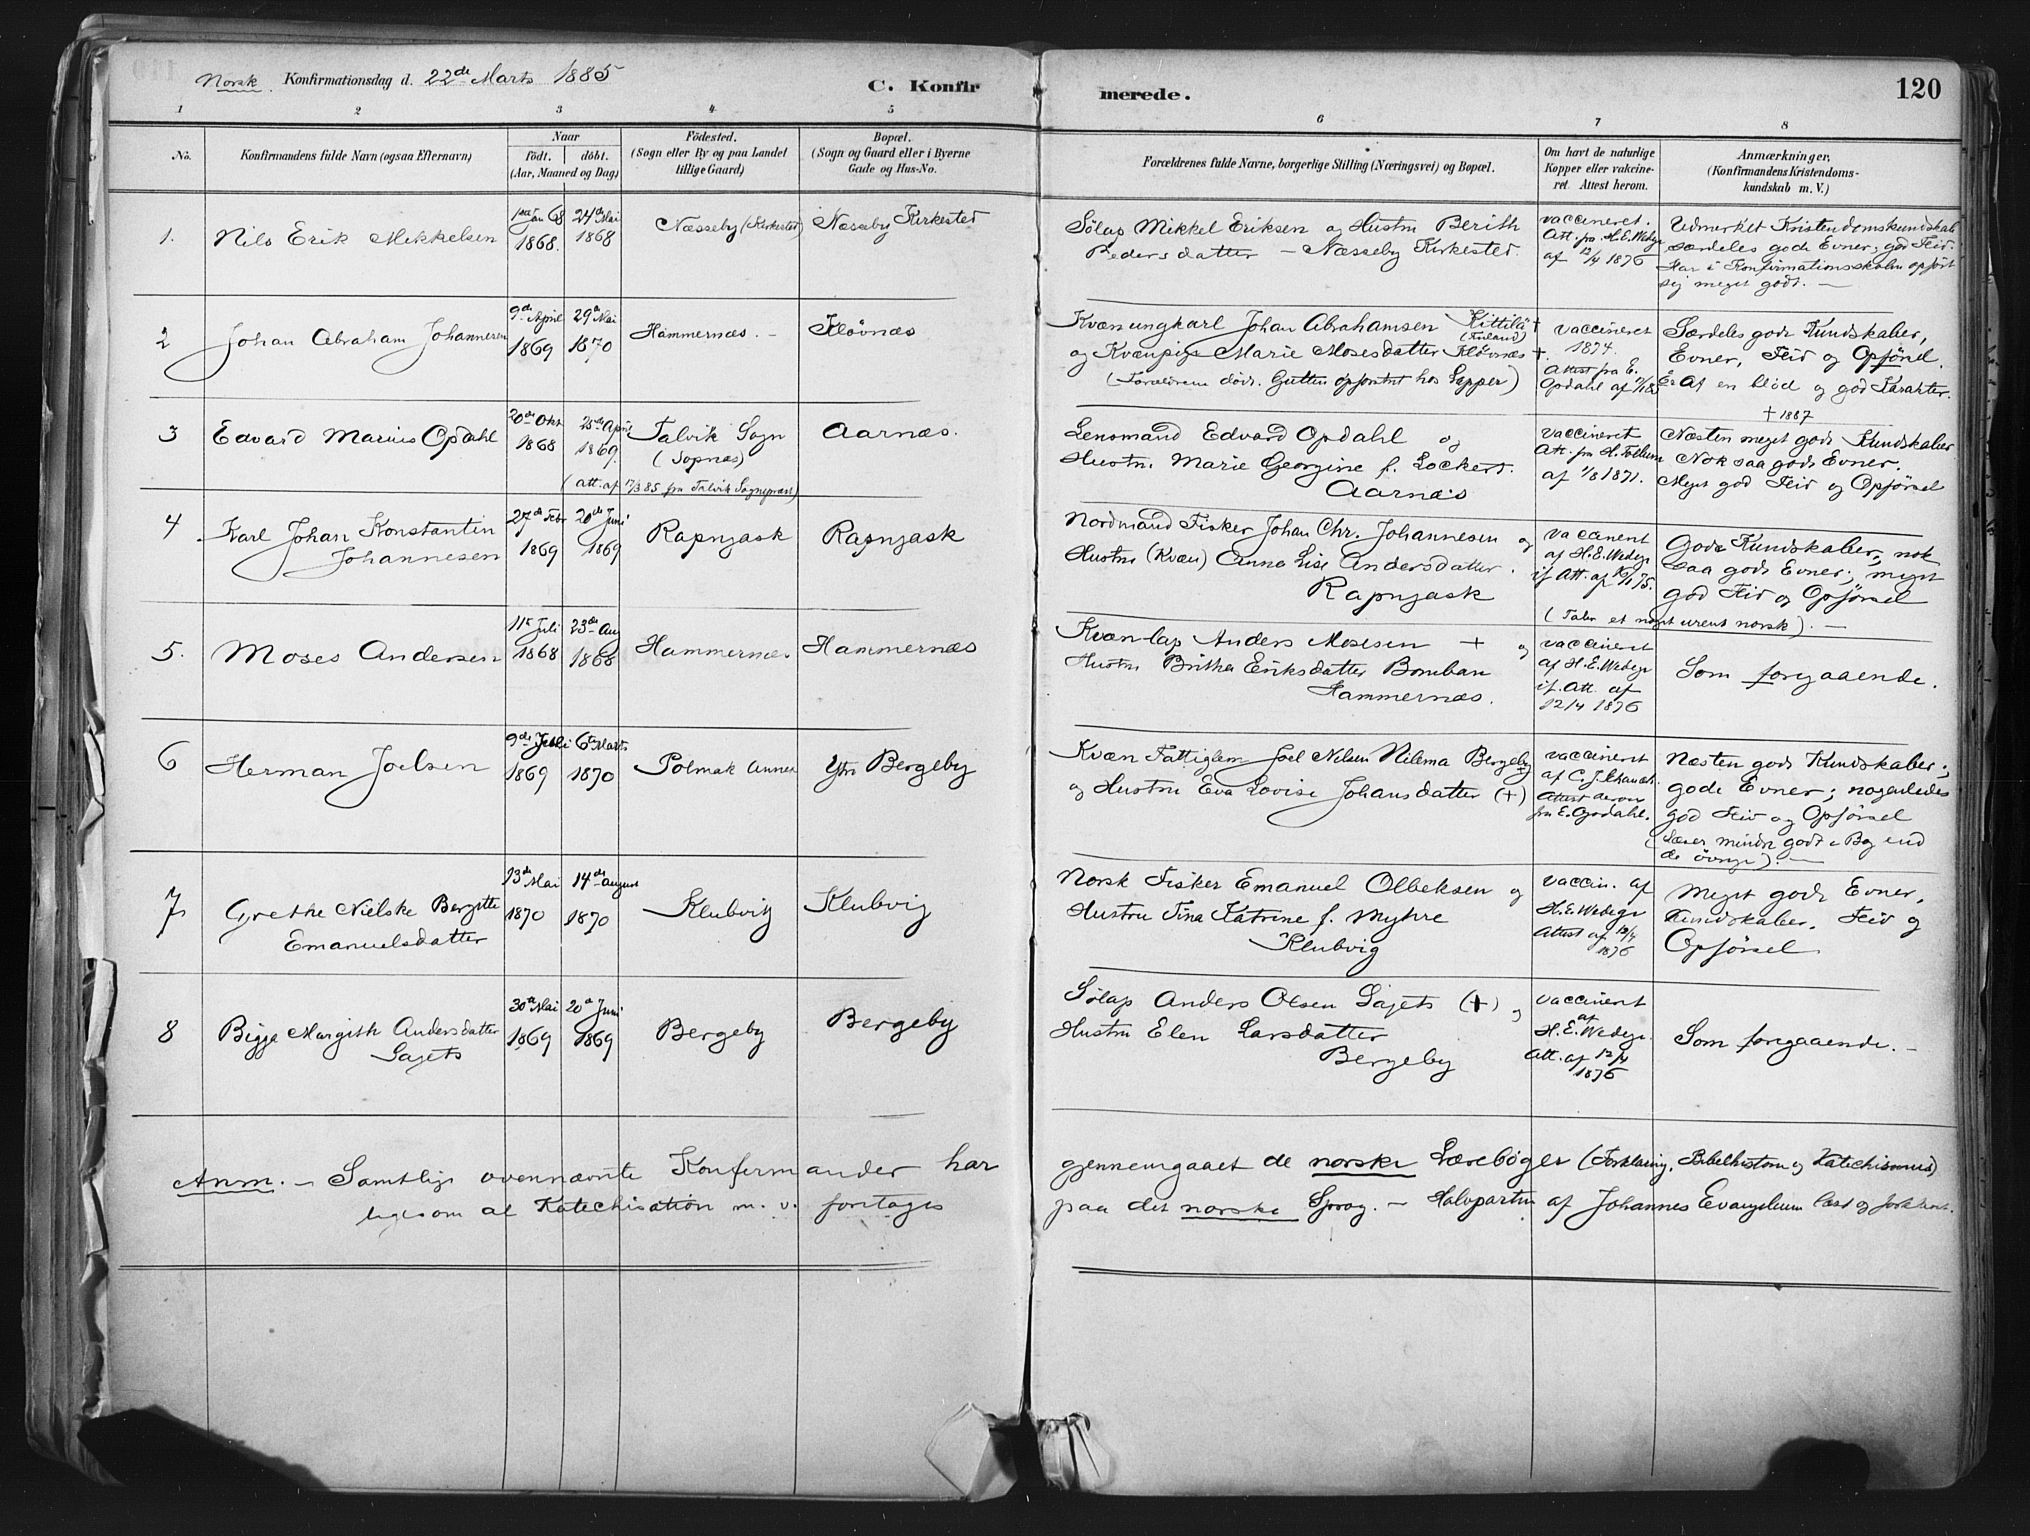 Norsk. Konfirmationsdag d. 22de Marts 1885
C. Konfir
merede.
120
1 2 3 4 5 6 7 8
No.
Konfirmandens fulde Navn (ogsaa Efternavn)
Naar
födt. döbt.
(Aar, Maaned og Dag)
Födested.
(Sogn eller By og paa Landet
tillige Gaard)
Bopæl.
(Sogn og Gaard eller i Byerne
Gade og Hus-No.
Forældrenes fulde Navne, borgerlige Stilling (Næringsvei) og Bopæl.
Om havt de naturlige
Kopper eller vakcine-
ret. Attest herom.
Anmærkninger,
(Konfirmandens Kristendoms-
kundskab m. V.)
1.
Nils Erik Mikkelsen
1ste Jan 68
1868.
24de Mai
1868
Næsseby (Kirkested)
Næsseby Kirkested
Sölap Mikkel Eriksen og Hustru Berith
Pedersdatter – Næsseby Kirkested.
vaccineret.
Att. fra H. E. Wedege
af 12/4 1876
Udmerket Kristendomskundskab
særdeles gode Evner, god Flid.
Har i Konfirmationsskolen opført
sig meget godt. –
2
Johan Abraham Johannesen
9de April
1869
29de Mai
1870
Hammernæs. –
Kløvnæs
Kvæn ungkarl Johan Abrahamsen Kittilä +
(Finland)
og Kvænpige Marie Mosesdatter Kløvnæs +.
(Forældrene døde. Gutten opfostret hos Lapper)
vaccineret
1874.
Attest fra E.
Opdahl af
Særdeles gode Kundskaber,
Evner, Flid og Opførsel.
Er af en blød og god Karakter.
+ 1887
3
Edvard Marius Opdahl
20de Okt
1868
25de April
1869.
Talvik Sogn
(Sopnæs)
(Att. af 17/3 85 fra Talvik Sognepræst)
Aarnæs.
Lensmand Edvard Opdahl og
Hustru Marie Georgine f. Lockert.
Aarnæs
vaccineret
Att. fra H.
af 1/8 1871.
Næsten meget gode Kundskaber
Nok saa gode Evner.
Meget god Flid og Opførsel
4
Karl Johan Konstantin
Johannesen
27de Febr
1869
20de Juni
1869
Rapnjask
Rapnjask
Nordmand Fisker Johan Chr. Johannesen og
Hustru (Kvæn) Anna Lise Andersdatter.
Rapnjask
vaccineret
af H. E. Wedege
if. Att. af
Gode Kundskaber; nok
saa gode Evner; meget
god Flid og Opførsel
(Taler et noget urent norsk). –
5.
Moses Andersen
11te Juli
1868
23de Aug
1868
Hammernæs
Hammernæs
Kvæn-lap Anders Mosesen + og
Hustru Britha Eriksdatter Bomban
Hammernæs.
vaccineret
af H. E. Wedege
if. Att. af
12/4 1876
Som foregaaende.
6
Herman Joelsen
9de Juli
1869
6te Marts
1870
Polmak Annex
Ytre Bergeby
Kvæn Fattiglem Joel Nilsen Nilema Bergeby
og Hustru Eva Lovise Johansdatter (+)
vaccineret
af C. J.
Attest derom
fra E. Opdahl.
Næsten gode Kundskaber;
gode Evner; nogenledes
god Flid og Opførsel
(Læser mindre godt i Bog end
de øvrige). –
7
Grethe Nielske Bergitte
Emanuelsdatter
13de Mai
1870
14de August
1870
Klubvig
Klubvig
Norsk Fisker Emanuel Olbeksen og
Hustru Tina Katrine f. Myhre
Klubvig
vaccin. af
H. E. Wedege
Attest af 12/4
1876
Meget gode Evner,
Kundskaber, Flid og
Opførsel
8
Bigga Margith Andersdatter
Sajets
30te Mai
1869
20de Juni
1869
Bergeby
Bergeby
Sölap Anders Olsen Sajets (+) og
Hustru Elen Larsdatter
Bergeby
vaccineret
af
H. E. Wedege.
Att. af 12/4
1876
Som foregaaende. –
Anm. – Samtlige ovennævnte Konfirmander har gjennemgaaet de norske Lærebøger (Forklaring, Bibelhistorie og Katechismus)
ligesom al Katechisation m. v. foretoges paa det norske Sprog. – Halvparten af Johannes Evangelium læst og forklaret.